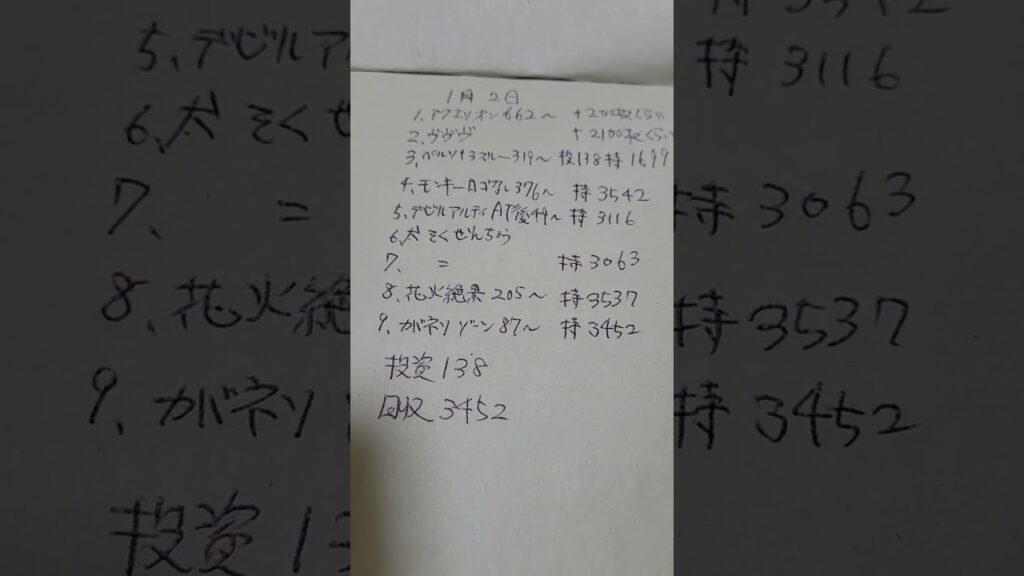 1月2日
1. アクエリオン662〜 +200枚くらい
2. ヴヴヴ +2100枚くらい
3. ペルソナ3マルー319〜 投138持1699
4. モンキーAゴなし376〜 持3542
5. デビルアルティAT後49〜 持3116
6. 犬 そくぜんちょう
7. 〃 持3063
8. 花火絶景205〜 持3537
9. カバネリ ゾーン87〜 持3452
投資138
回収3452